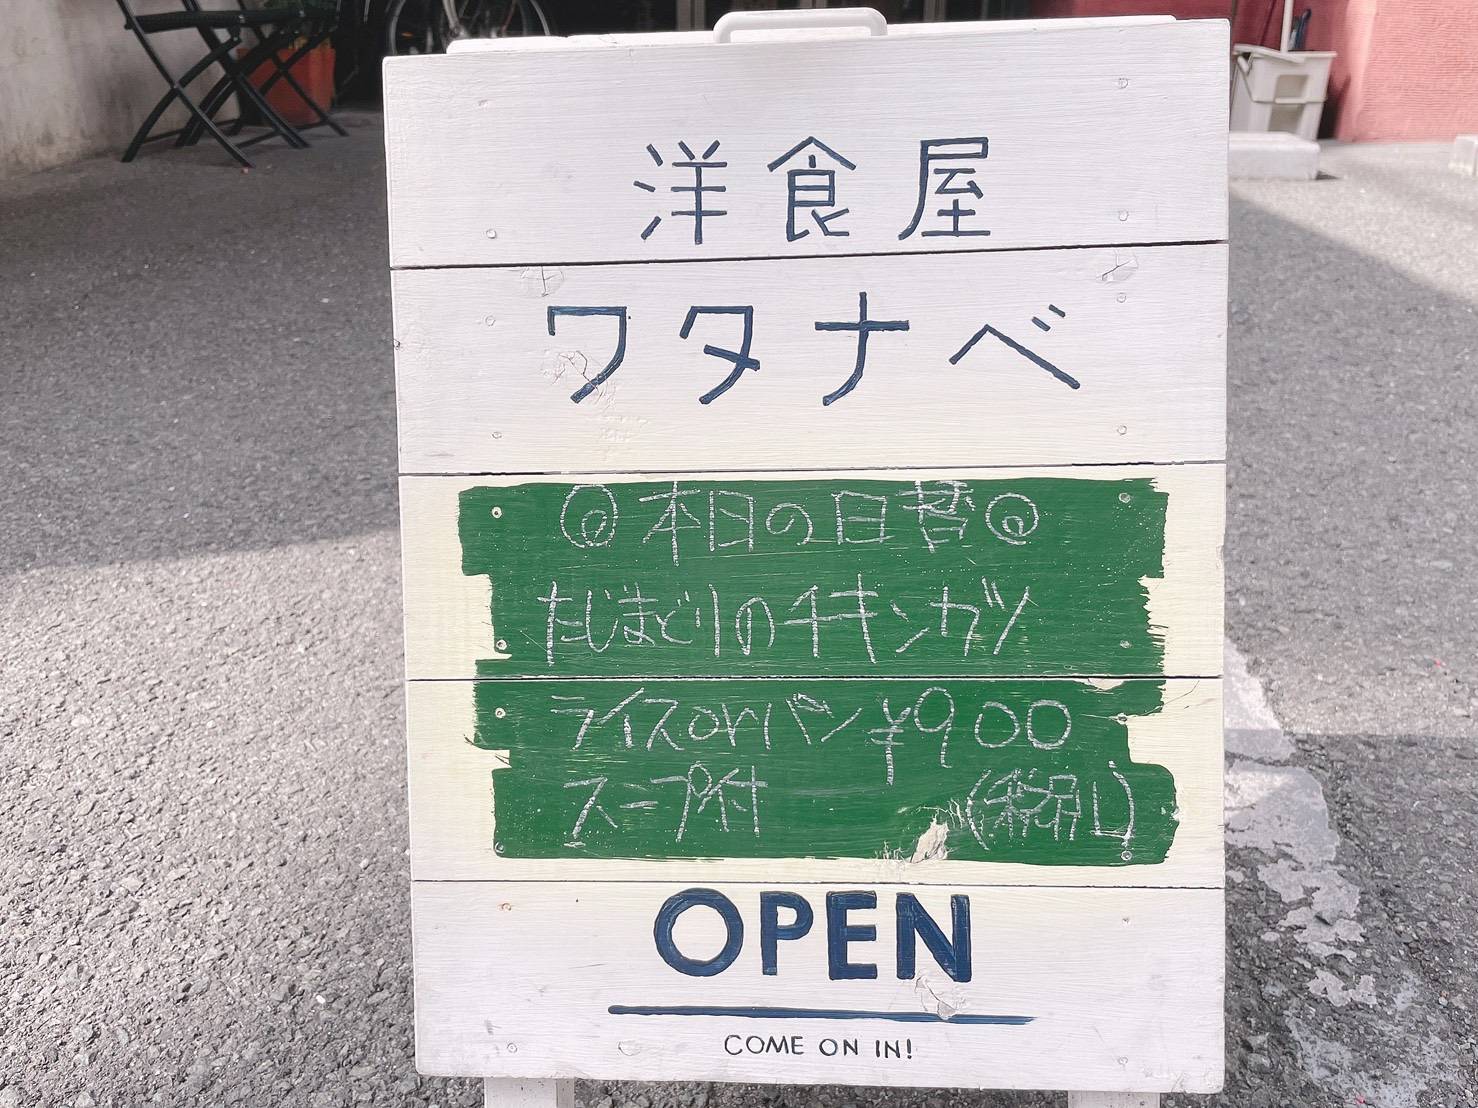 洋食屋
ワタナベ
◎本日の日替◎
たじまどりのチキンカツ
ライスorパン ¥900
スープ付 (税別)
OPEN
COME ON IN!